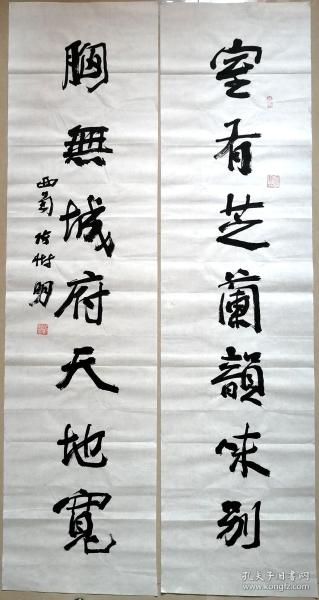 室有芝蘭韻味别
胸無城府天地寬
西蜀
孔夫子旧书网